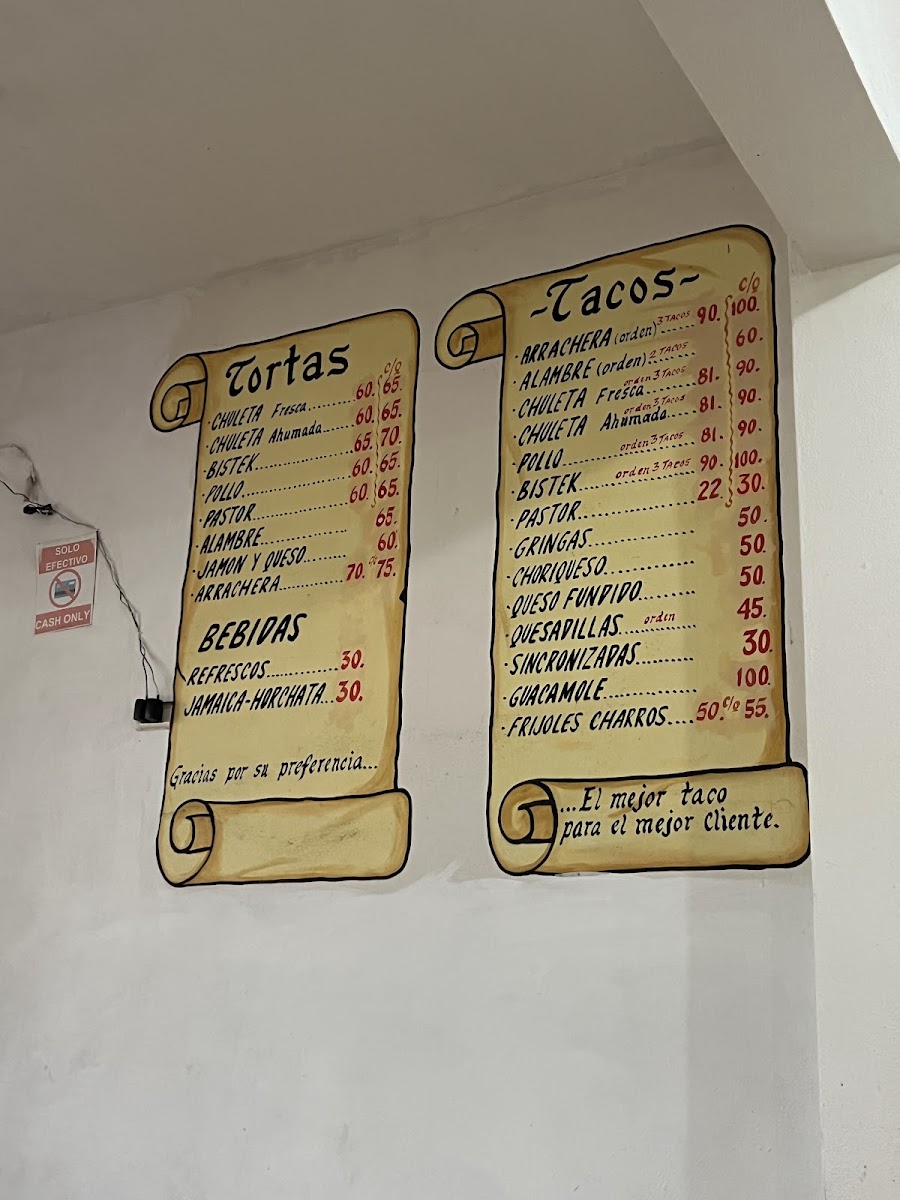 SOLO
EFECTIVO
CASH ONLY
Tortas
c/Q
·CHULETA Fresca........60. 65.
·CHULETA Ahumada.....60. 65.
·BISTEK..................65. 70.
·POLLO...................60. 65.
·PASTOR.................60. 65.
·ALAMBRE.............. 65.
·JAMON Y QUESO....... 60.
·ARRACHERA............70. c/Q 75.
BEBIDAS
REFRESCOS............30.
JAMAICA-HORCHATA...30.
Gracias por su preferencia...
-Tacos-
c/Q
·ARRACHERA (orden) 3 TACOS ..... 90. 100.
·ALAMBRE (orden) 2 TACOS ...... 60.
·CHULETA Fresca orden 3 TACOS ..... 81. 90.
·CHULETA Ahumada orden 3 TACOS .... 81. 90.
·POLLO orden 3 TACOS ........ 81. 90.
·BISTEK orden 3 TACOS ........ 90. 100.
·PASTOR............... 22. 30.
·GRINGAS.............. 50.
·CHORIQUESO............ 50.
·QUESO FUNDIDO........ 50.
·QUESADILLAS... orden ...... 45.
·SINCRONIZADAS........ 30.
·GUACAMOLE............ 100.
·FRIJOLES CHARROS....50. c/Q 55.
...El mejor taco
para el mejor Cliente.